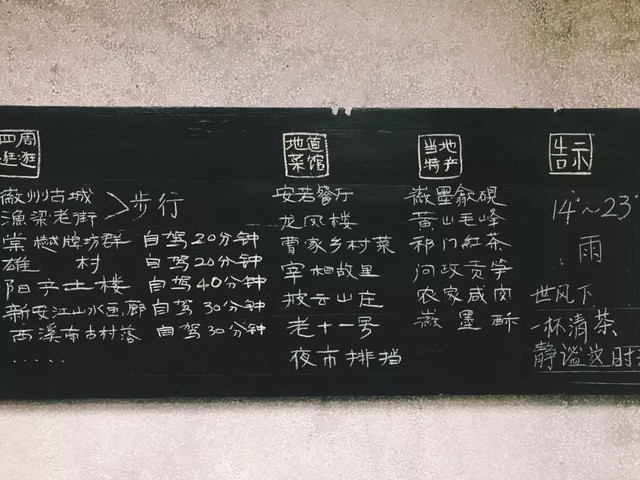 四周
逛逛
徽州古城
漁梁老街
>步行
棠樾牌坊群 自驾20分钟
雄 村 自驾20分钟
阳产土楼 自驾40分钟
新安江山水画廊 自驾30分钟
西溪南古村落 自驾30分钟
.....
地道
菜馆
安若餐厅
龙凤楼
曹家乡村菜
宰相故里
披云山庄
老十一号
夜市排挡
当地
特产
徽墨歙硯
黄山毛峰
祁门紅茶
问政贡笋
农家咸肉
徽墨酥
告示
14°~23°
雨
世风下
一杯清茶
静谧岁时